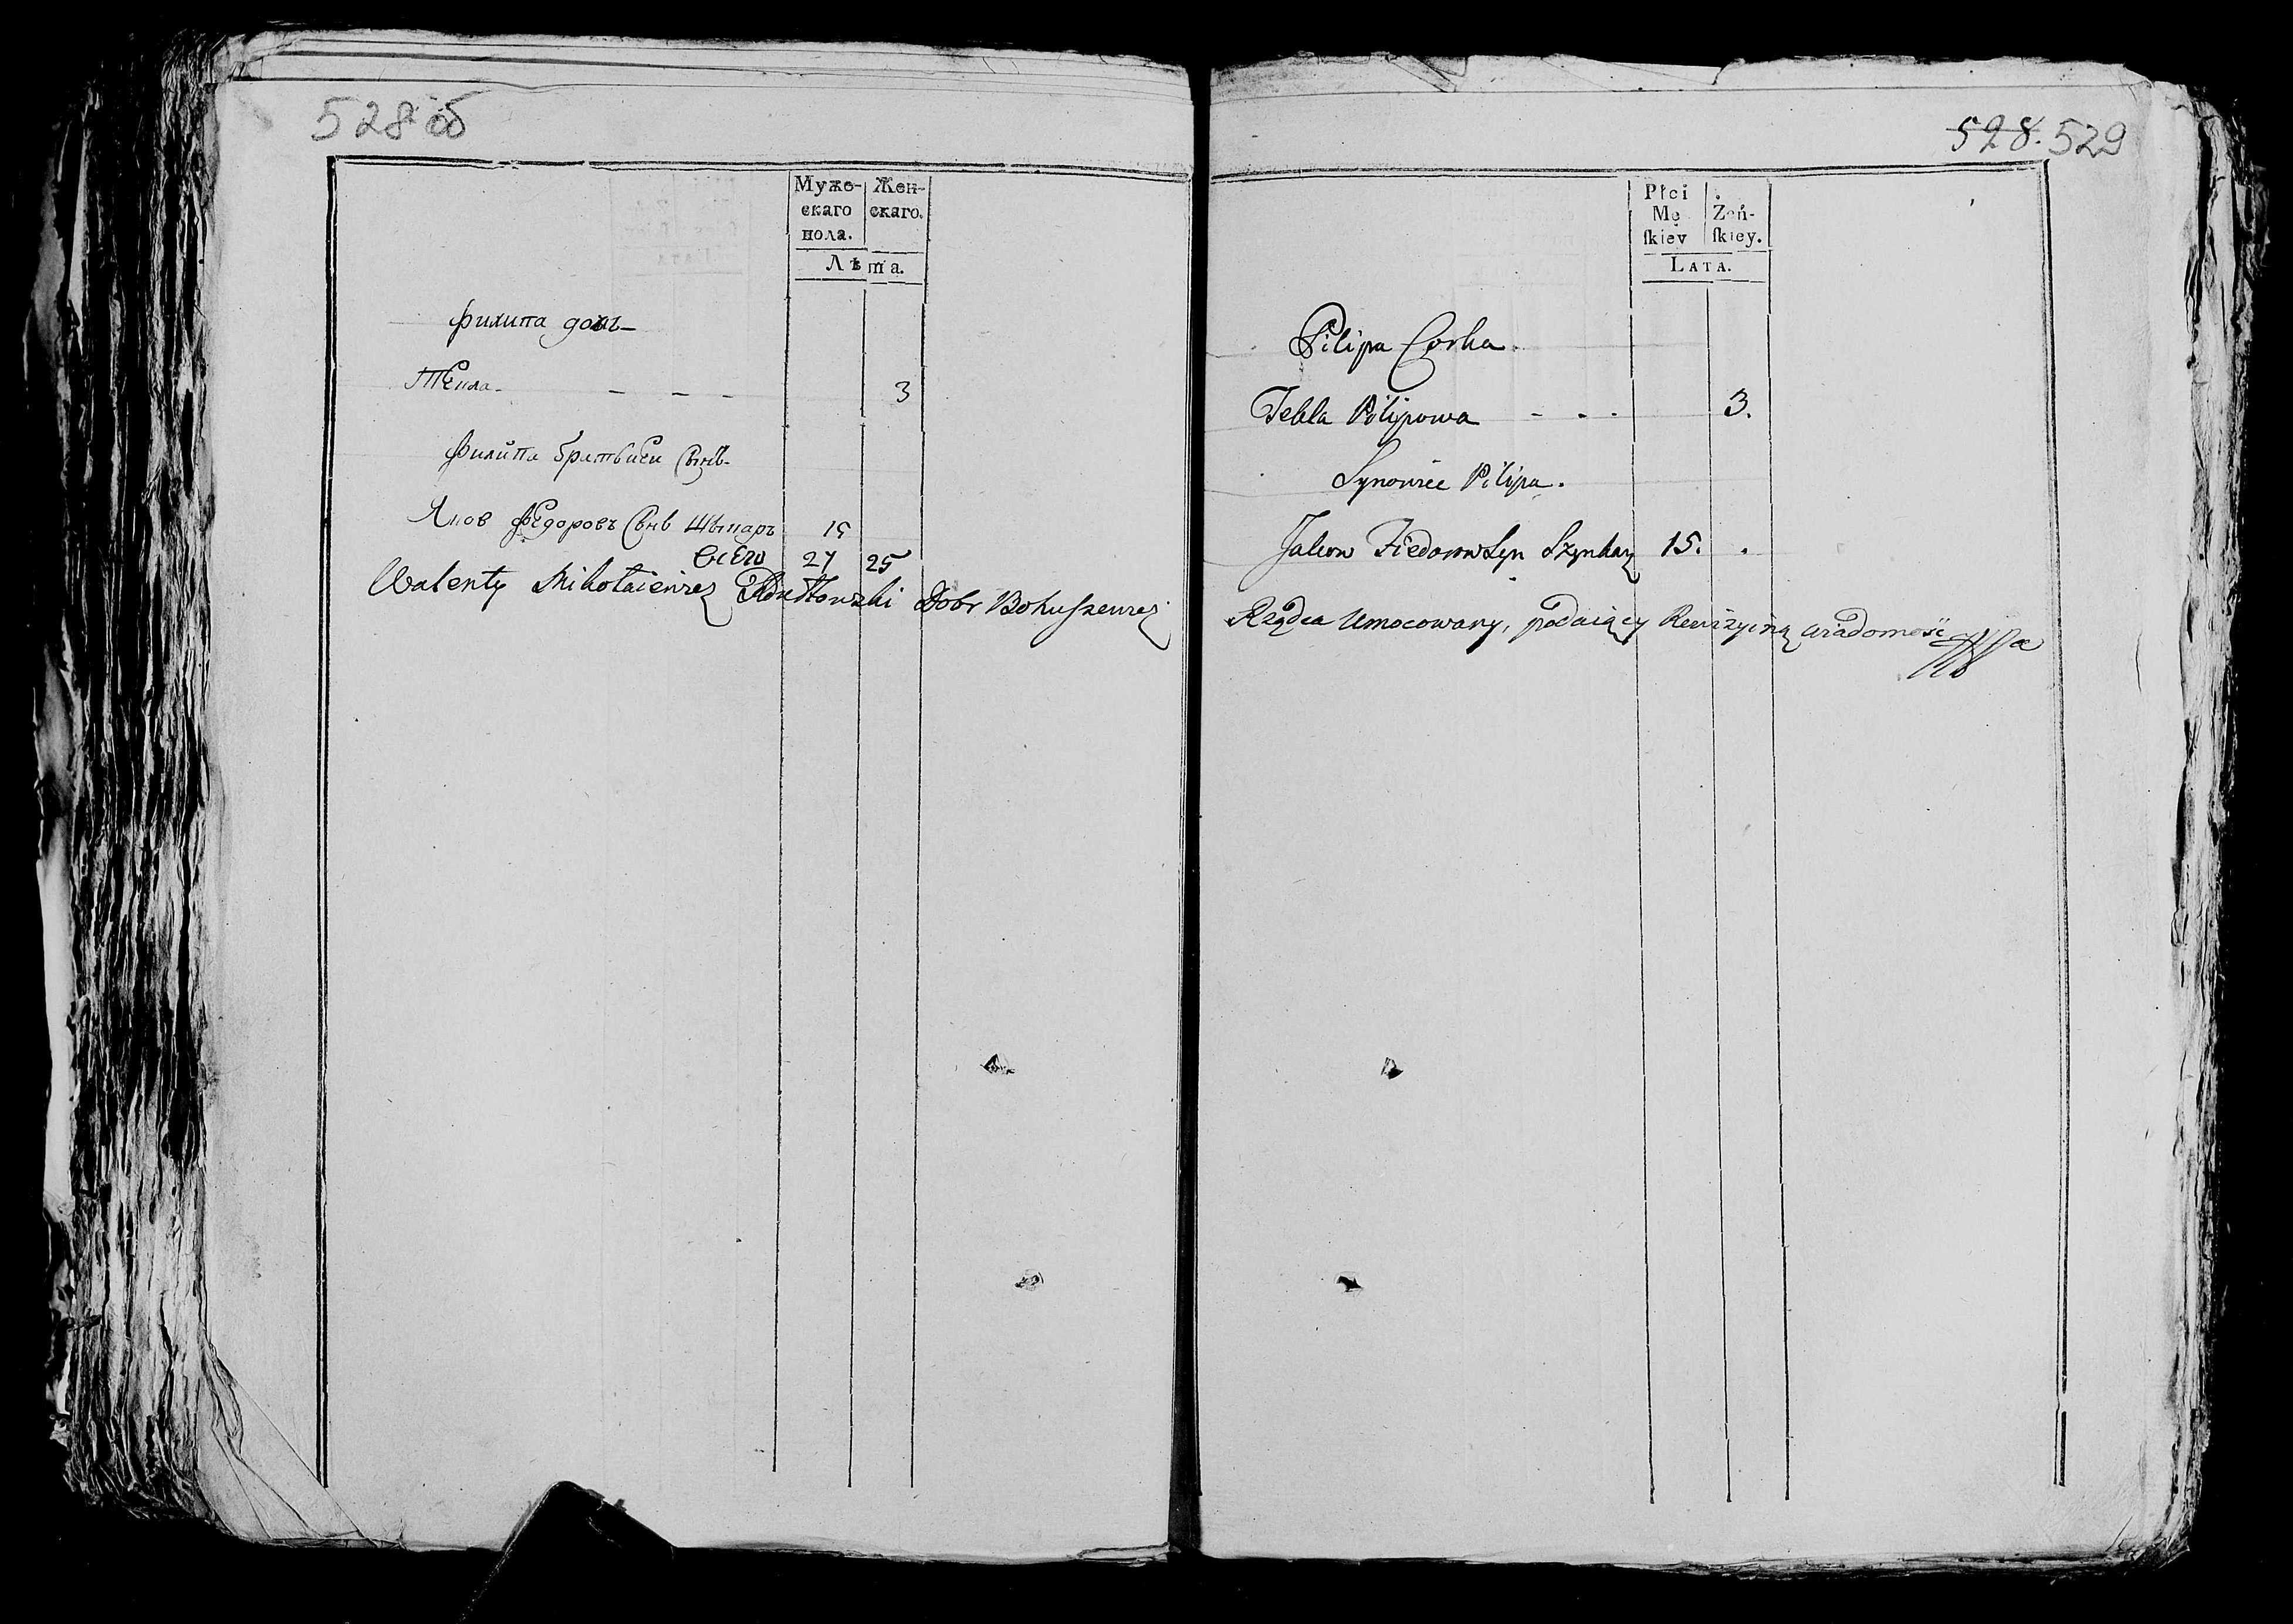 528 об
Муже- Жен-
скаго скаго.
пола.
Лѣта.
Филипа дочь
Текла - - - - 3
Филипа братьиеи Сынъ
Яков Федоровъ Сынъ Шынкаръ 15
всего 27 25
Walenty Mikołaiewicz Dobr Bohuszewicz
528. 529
Płci
Mę Żeń-
ſkiey ſkiey.
LATA.
Pilipa Corka
Tekla Pilipowa - - - 3.
Synowiec Pilipa.
Jakow Fiedorow Syn Szynkarz 15. .
Rządca Umocowany, podaiący Rewizyiną wiadomość